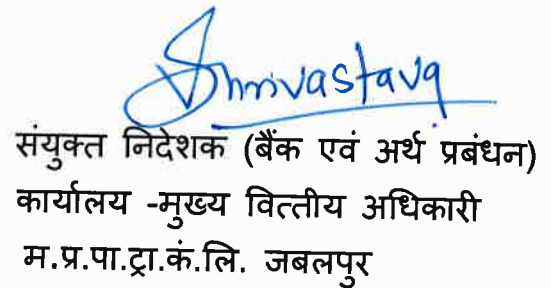 Shrivastava
संयुक्त निदेशक (बैंक एवं अर्थ प्रबंधन)
कार्यालय -मुख्य वित्तीय अधिकारी
म.प्र.पा.ट्रा.कं.लि. जबलपुर